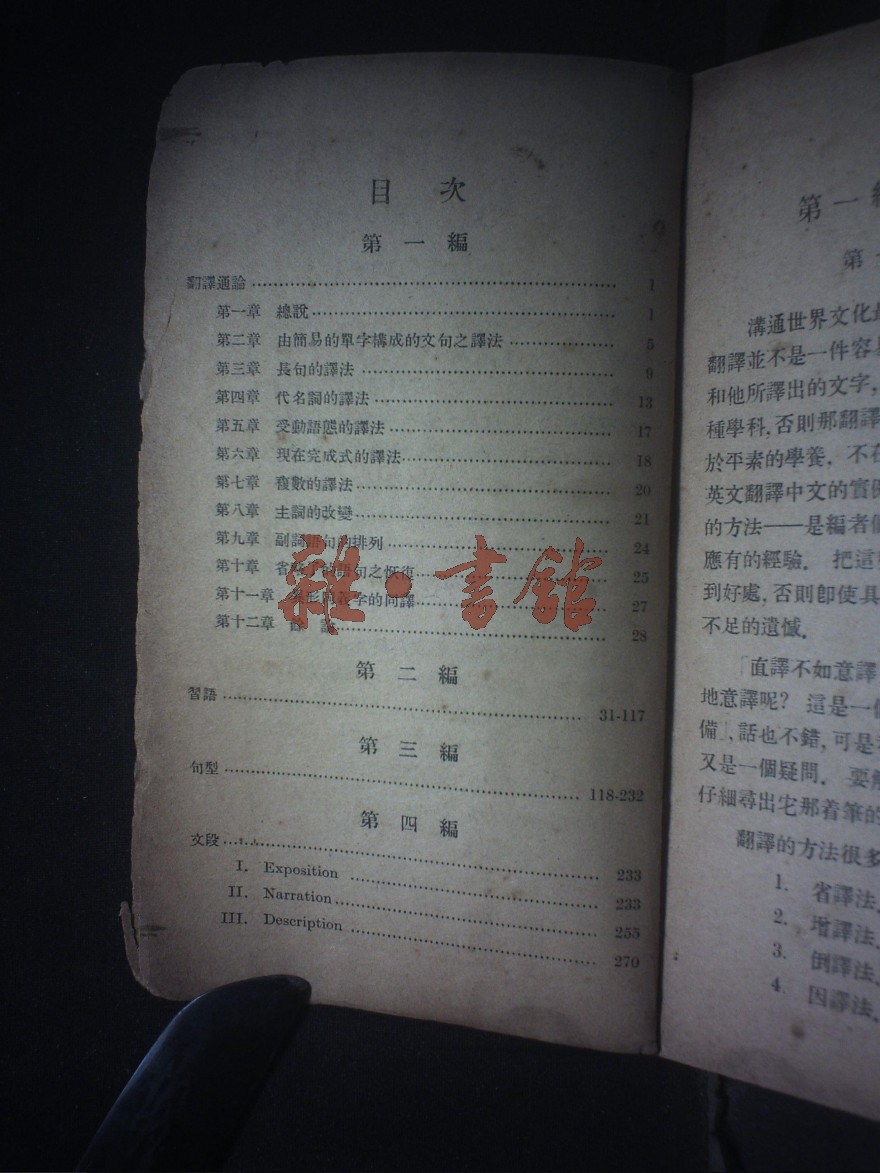 目 次
第 一 編
翻譯通論 1
第一章 總說 1
第二章 由簡易的單字構成的文句之譯法 5
第三章 長句的譯法 9
第四章 代名詞的譯法 13
第五章 受動語態的譯法 17
第六章 現在完成式的譯法 18
第七章 複數的譯法 20
第八章 主詞的改變 21
第九章 副詞語句的排列 24
第十章 省 語句之恢復 25
第十一章 形 義字的同譯 27
第十二章 餘 論 28
第 二 編
習語 31-117
第 三 編
句型 118-232
第 四 編
文段 233
I. Exposition 233
II. Narration 255
III. Description 270
雜·書館
第一編
第
溝通世界文化
翻譯並不是一件容
和他所譯出的文字,
種學科,否則那翻譯
於平素的學養. 不在
英文翻譯中文的實例
的方法——是編者
應有的經驗. 把這
到好處,否則卽使具
不足的遺憾.
「直譯不如意譯
地意譯呢? 這是一個
備」,話也不錯,可是
又是一個疑問. 要
仔細尋出它那着筆的
翻譯的方法很多
1. 省譯法.
2. 增譯法.
3. 倒譯法.
4. 因譯法.